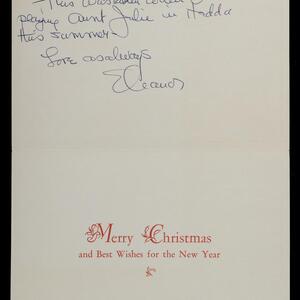 This was taken when I
playing Aunt Julie in Hedda
this summer.
Love as always
Eleanor
Merry Christmas
and Best Wishes for the New Year